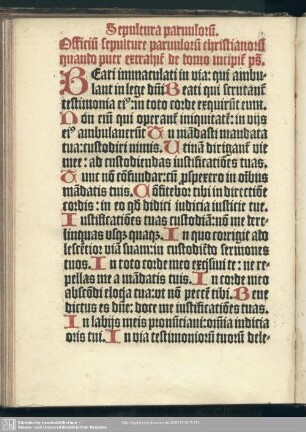 Sepultura parvulorū.
Officiū sepulture parvulorū christianorū
quando puer extrahit̄ de domo incipit̄ ps̄.
BEati immaculati in via: qui ambu-
lant in lege dn̄i Beati qui scrutant̄
testimonia ei⁹: in toto corde exquirūt eum.
Non eiū qui operant̄ iniquitatē: in vijs
ei⁹ ambulaverūt Tu mādasti mandata
tua: custodiri nimis. Utinā dirigant̄ vie
mee: ad custodiendas iustificatiōes tuas.
Tunc nō cōfundar: cū pspexero in oībus
mādatis tuis. Cōfitebor tibi in directiōe
cordis: in eo qd̄ didici iudicia iusticie tue.
Iustificatiōes tuas custodiā: nō me dere-
linquas usqȝ quaqȝ. In quo corrigit ado
lescētior viā suam: in custodiēdo sermones
tuos. In toto corde meo exquisiui te: ne re-
pellas me a mādatis tuis. In corde meo
abscōdi eloq̄a tua: ut nō peccē tibi. Bene
dictus es dn̄e: doce me iustificatiōes tuas.
In labijs meis pronūciavi: om̄ia iudicia
oris tui. In via testimoniorū tuorū dele-